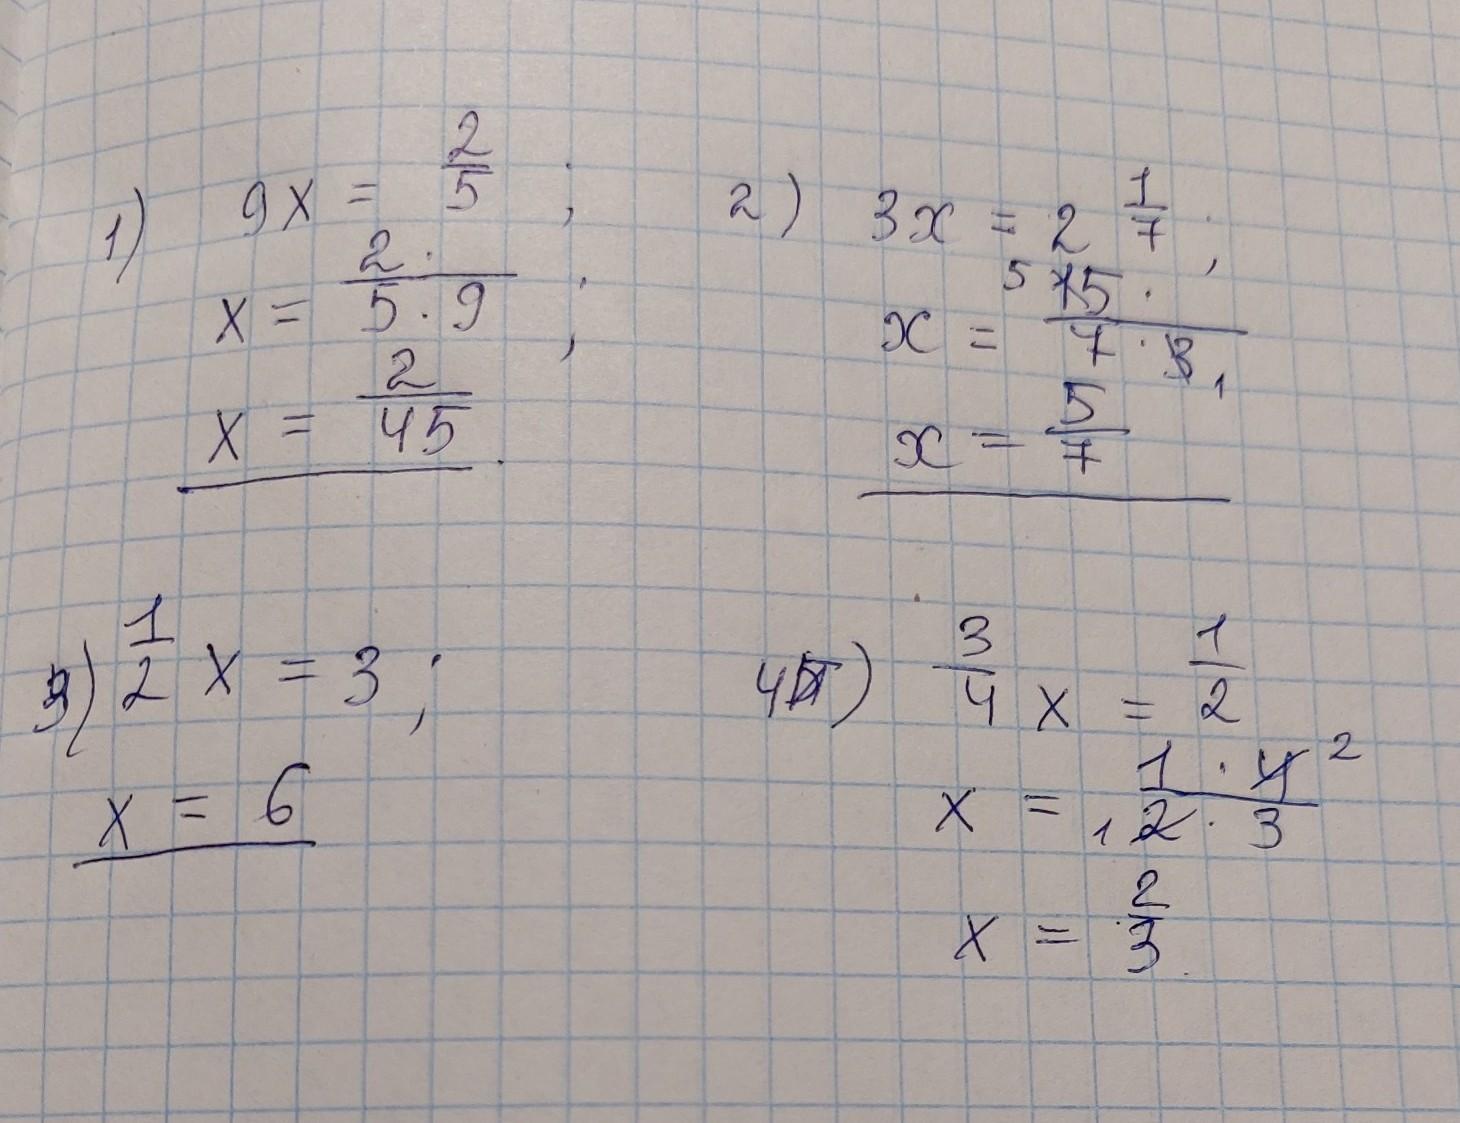 1) 9x = 2/5 ;
x = 2/(5 · 9) ;
x = 2/45
2) 3x = 2 1/7 ;
x = 5 15/(7 · 3) 1
x = 5/7
3) 1/2 x = 3 ;
x = 6
4) 3/4 x = 1/2
x = (1 · 4 2)/(1 2 · 3)
x = 2/3